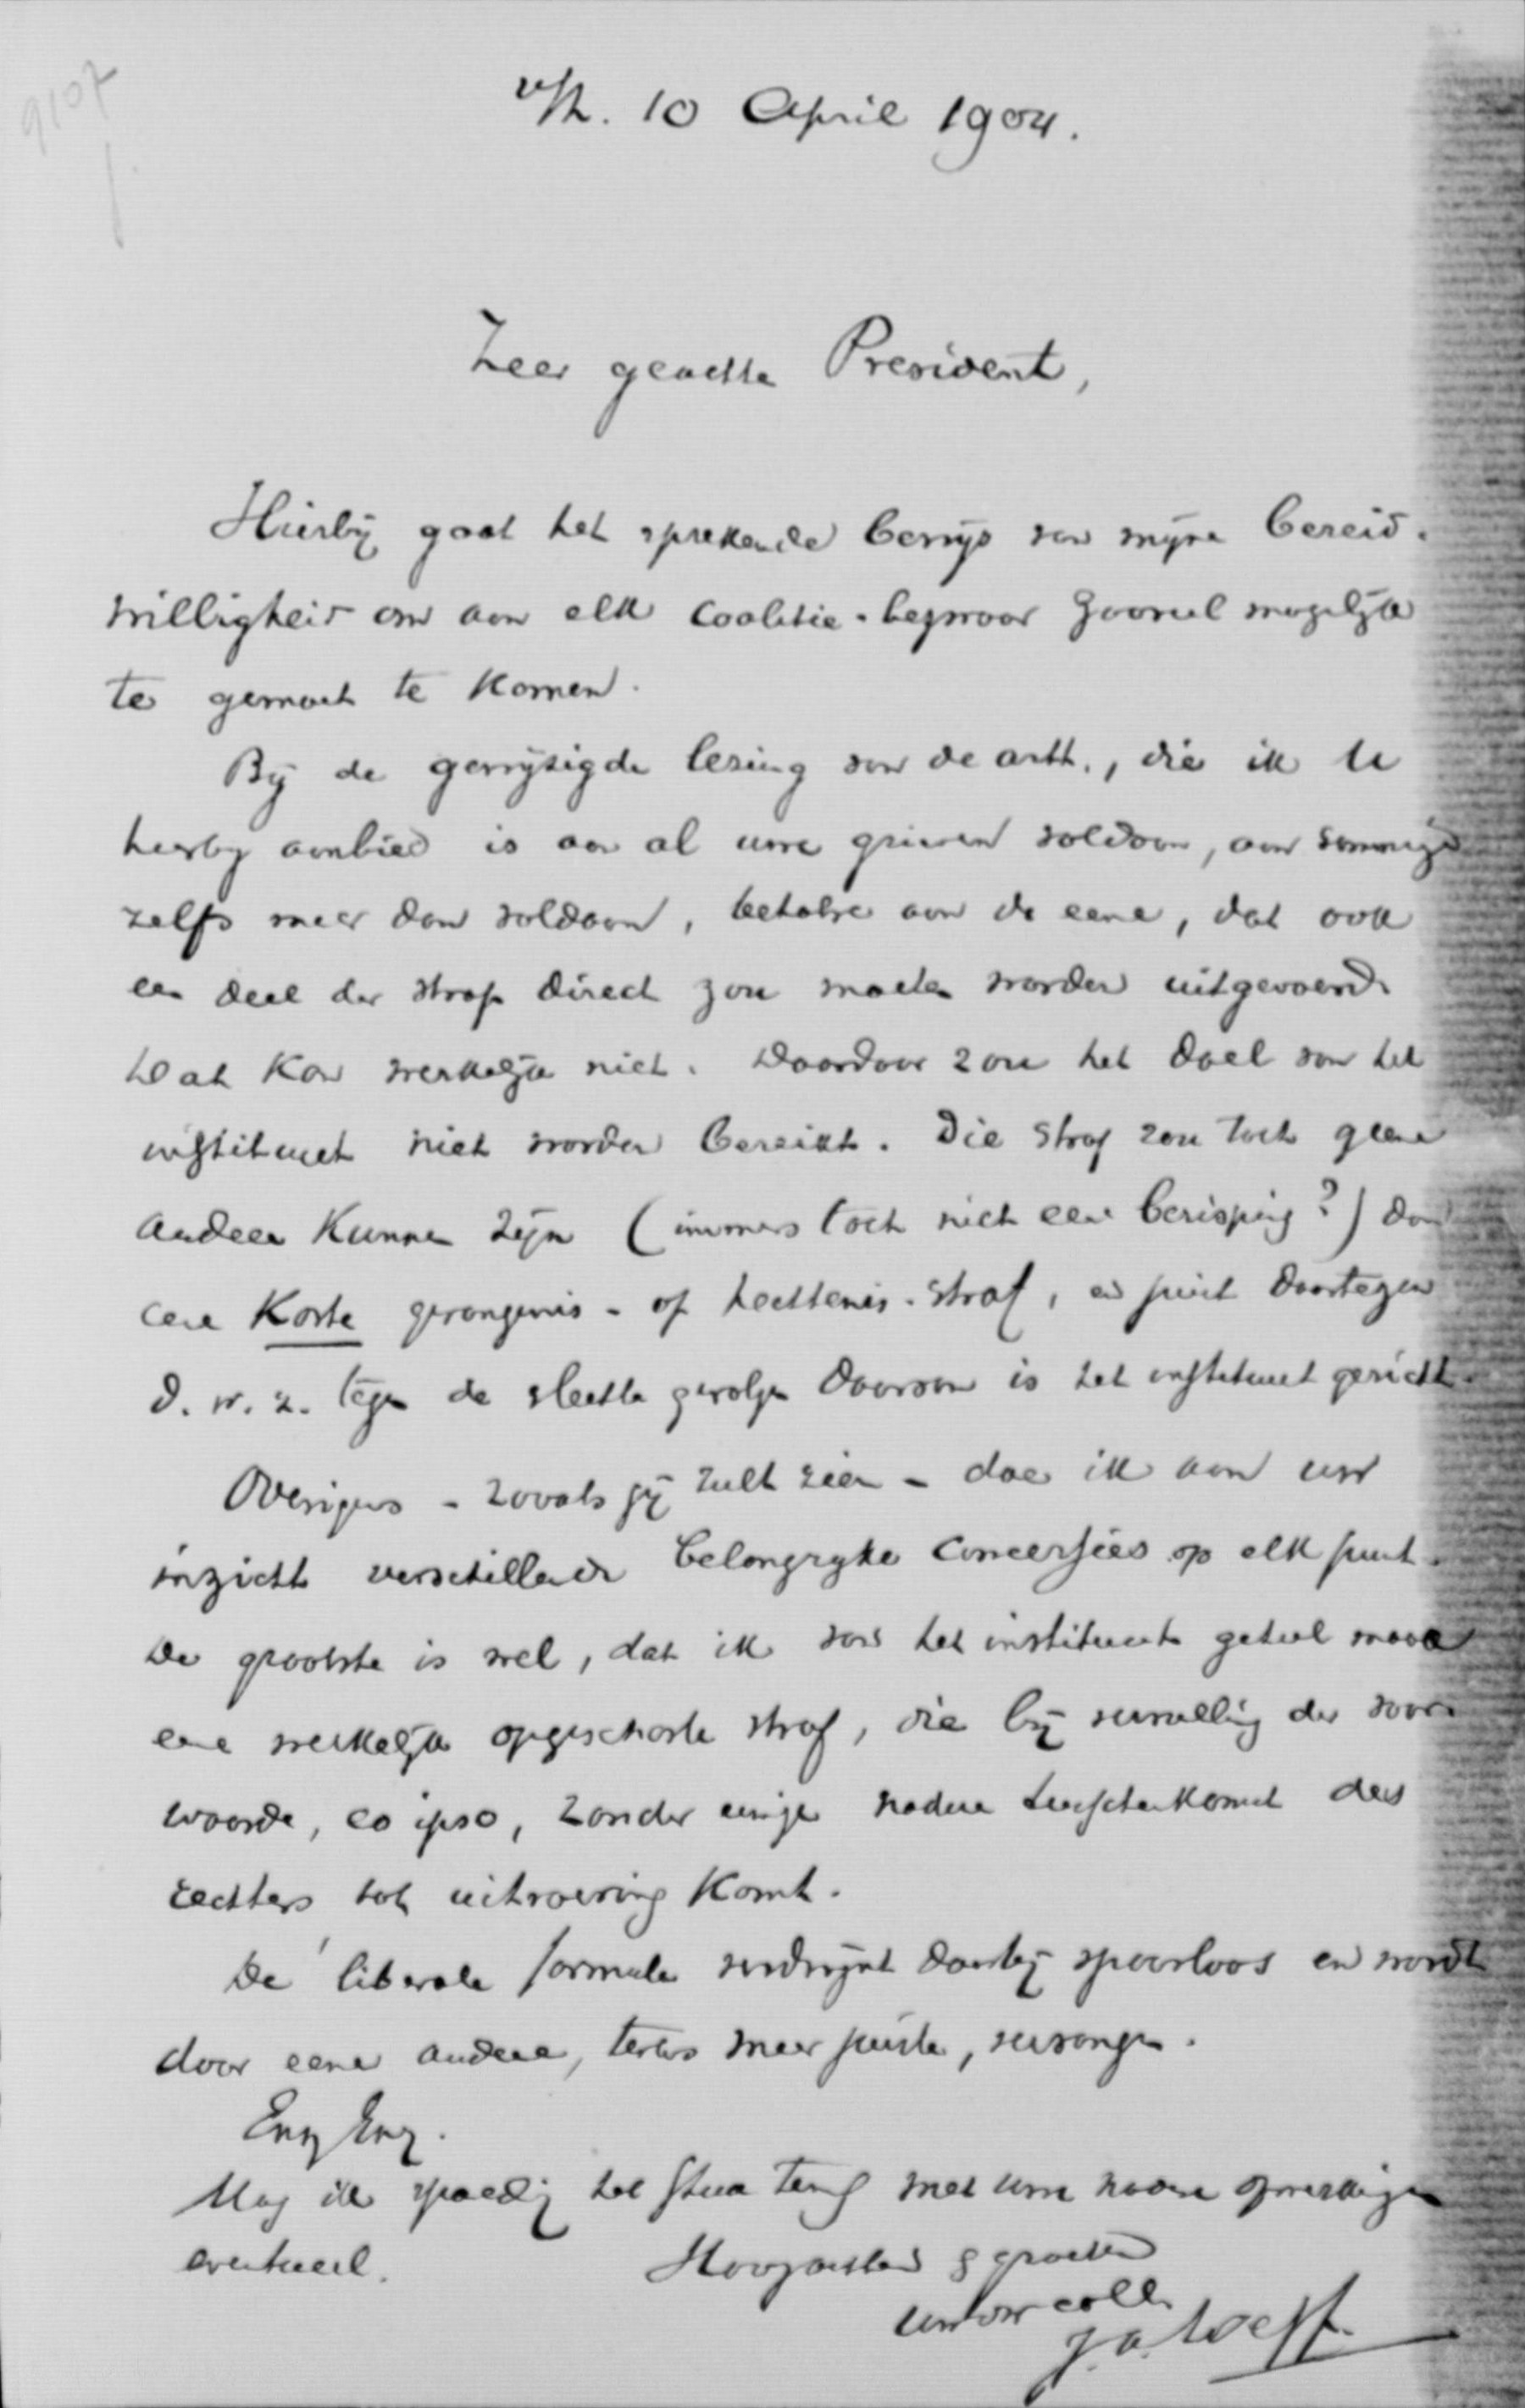 9107
v/h. 10 April 1904.
Zeer geachte President,
Hierbij gaat het sprekende bewijs van mijne bereid-
willigheid om aan elk coalitie-bezwaar zooveel mogelijk
te gemoet te komen.
Bij de gewijzigde lezing van de artt., die ik U
hierbij aanbied is aan al uwe grieven voldaan, aan sommige
zelfs meer dan voldaan, behalve aan de eene, dat ook
een deel der straf direct zou moeten worden uitgevoerd.
Dat kan werkelijk niet. Daardoor zou het doel van het
instituut niet worden bereikt. Die straf zou toch geene
andere kunnen zijn (immers toch niet eene berisping?) dan
eene korte gevangenis- of hechtenis-straf, en juist daartegen
d.w.z. tegen de slechte gevolgen daarvan is het instituut gericht.
Overigens - zooals gij zult zien - doe ik aan uw
inzicht verschillende belangrijke concessies op elk punt.
De grootste is wel, dat ik van het instituut geheel maak
eene werkelijk opgeschorte straf, die bij vervulling der voor-
waarde, eo ipso, zonder eenige nadere tusschenkomst des
rechters tot uitvoering komt.
De liberale formule verdwijnt daarbij spoorloos en wordt
door eene andere, tevens meer juiste, vervangen.
Enz Enz.
Mag ik spoedig het stuk terug met uwe nadere opmerkingen
eventueel. Hoogachtend & groetend
uw dw coll.
J.A. Loeff